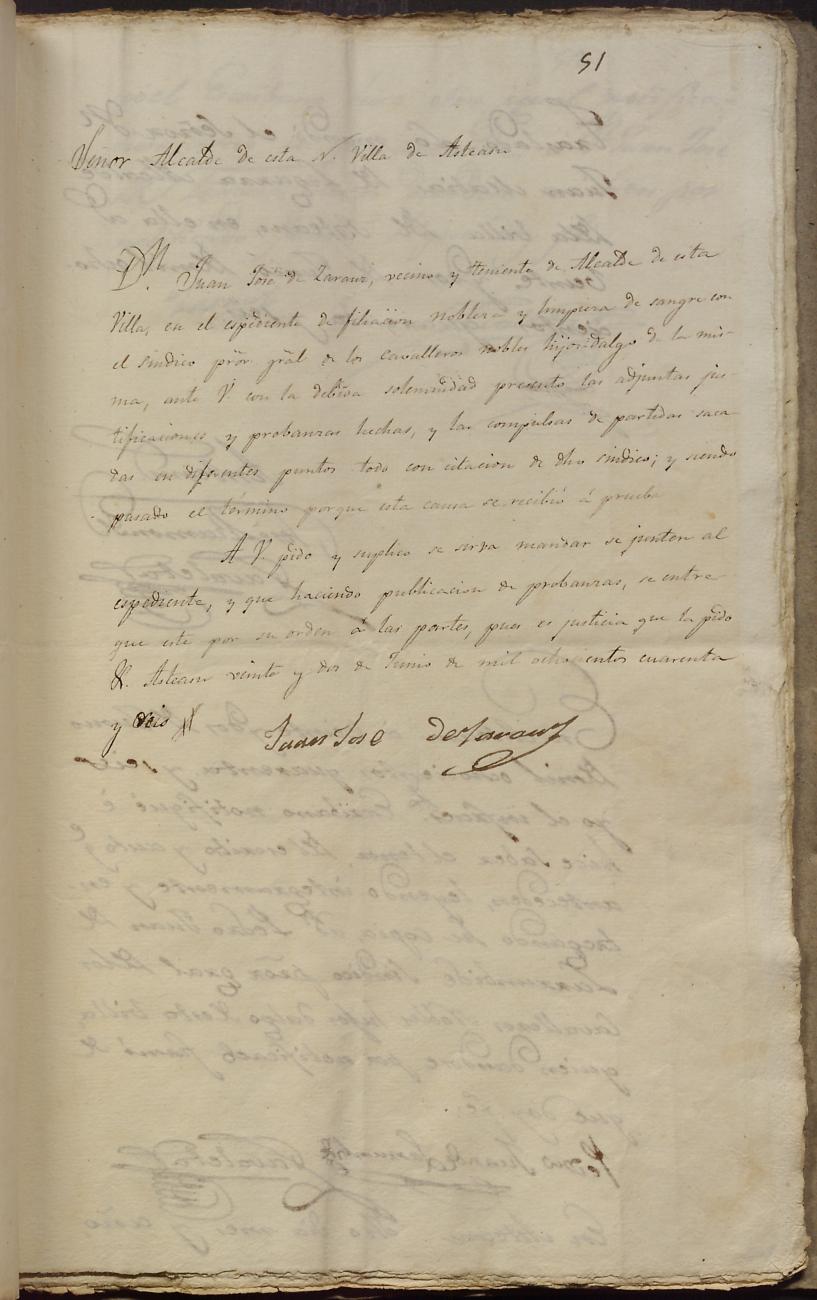 51
Señor Alcalde de esta N. Villa de Asteasu
Dn. Juan José de Zarauz, vecino y teniente de Alcalde de esta
Villa, en el espediente de filiacion nobleza y limpieza de sangre con
el sindico prōr grāl de los cavalleros nobles hijosdalgo de la mis-
ma, ante V. con la debida solemnidad presento las adjuntas jus-
tificaciones y probanzas hechas, y las compulsas de partidas saca-
das en diferentes puntos todo con citacion de dho sindico; y siendo
pasado el término porque esta causa se recibió á prueba
A V. pido y suplico se sirva mandar se junten al
espediente, y que haciendo publicacion de probanzas, se entre-
gue este por su orden á las partes, pues es justicia que la pido
&. Asteasu veinte y dos de Junio de mil ochocientos cuarenta
y seis
Juan José de Zarauz